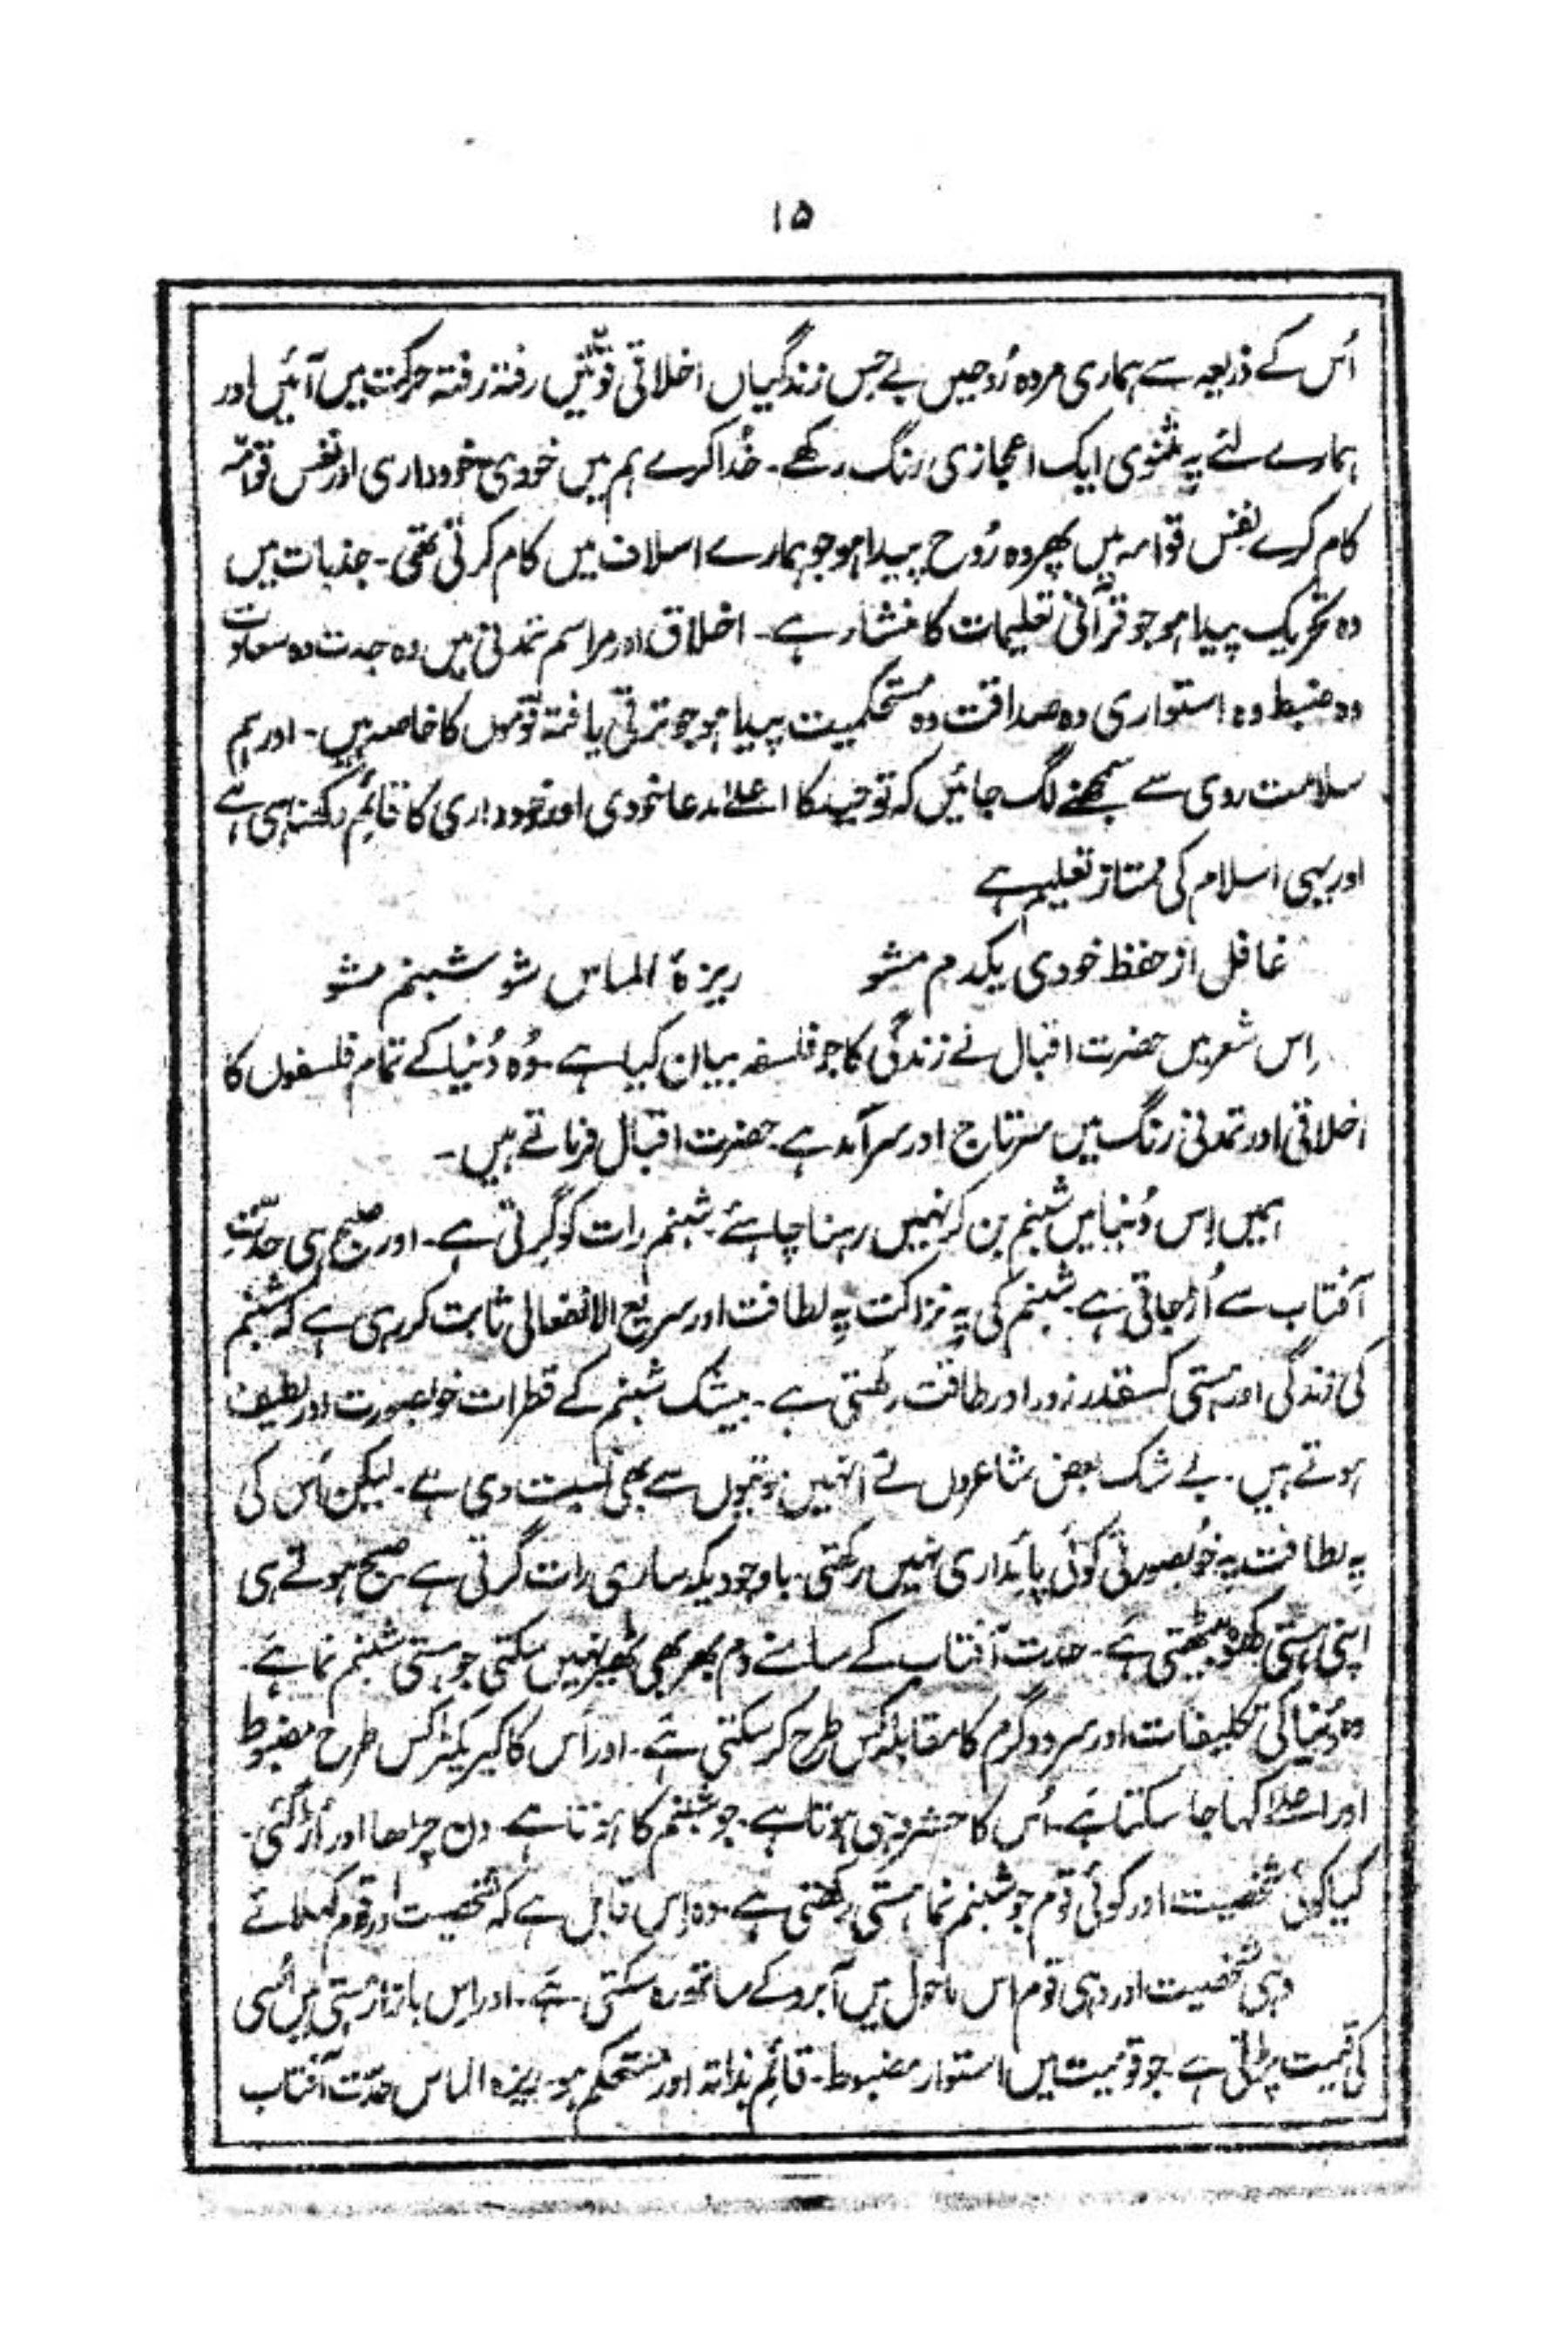 ۱۵
اُس کے ذریعہ سے ہماری مردہ رُوحیں بے حِس زندگیاں اخلاقی قوّتیں رفتہ رفتہ حرکت میں آئیں اور
ہمارے لئے یہ مثنوی ایک اعجازی رنگ رکھے۔ خُدا کرے ہم میں خودی خودداری اور نفس قوّامہ
کام کرے نفس قوّامہ میں پھر وہ رُوح پیدا ہو جو ہمارے اسلاف میں کام کرتی تھی۔ جذبات میں
وہ تحریک پیدا ہو جو قرآنی تعلیمات کا منشار ہے۔ اخلاق اور مراسم تمدنی میں وہ جدت وہ سعادت
وہ ضبط وہ استواری وہ صداقت وہ مُستحکمیت پیدا ہو جو ترقی یافتہ قوموں کا خاصہ ہیں۔ اور ہم
سلامت روی سے سمجھنے لگ جائیں کہ توحید کا اعلےٰ مدعا خودی اور خودداری کا قائم رکھنا ہی ہے
اور یہی اسلام کی ممتاز تعلیم ہے
غافل از حفظ خودی یکدم مشو ریزۂ الماس شو شبنم مشو
اِس شعر میں حضرت اقبال نے زندگی کا جو فلسفہ بیان کیا ہے۔ وُہ دُنیا کے تمام فلسفوں کا
اخلاقی اور تمدنی رنگ میں سرتاج اور سرآمد ہے۔ حضرت اقبال فرماتے ہیں۔
ہمیں اِس دُنیا میں شبنم بن کر نہیں رہنا چاہئے۔ شبنم رات کو گرتی ہے۔ اور صبح ہی حدّتِ
آفتاب سے اُڑ جاتی ہے۔ شبنم کی یہ نزاکت یہ لطافت اور سریع الانفعالی ثابت کر رہی ہے کہ شبنم
کی زندگی اور ہستی کسقدر زور اور طاقت رکھتی ہے۔ بیشک شبنم کے قطرات خوبصورت اور لطیف
ہوتے ہیں۔ بے شک بعض شاعروں نے انہیں موتیوں سے بھی نسبت دی ہے۔ لیکن اُس کی
یہ لطافت یہ خُوبصورتی کوئی پائداری نہیں رکھتی۔ باوجودیکہ ساری رات گرتی ہے صبح ہوتے ہی
اپنی ہستی کھو بیٹھتی ہے۔ حدت آفتاب کے سامنے دم بھر بھی ٹھیر نہیں سکتی جو ہستی شبنم نما ہے۔
وہ دُنیا کی تکلیفات اور سرد و گرم کا مقابلہ کس طرح کر سکتی ہے۔ اور اُس کا کیریکٹر کس طرح مضبوط
اور اعلےٰ کہا جا سکتا ہے۔ اُس کا حشر وہی ہوتا ہے۔ جو شبنم کا ہوتا ہے۔ دن چڑھا اور اُڑ گئی۔
کیا کوئی شخصیت اور کوئی قوم جو شبنم نما ہستی رکھتی ہے۔ وہ اِس قابل ہے کہ شخصیت اور قوم کہلائے
وہی شخصیت اور وہی قوم اس ماحول میں آبرو کے ساتھ رہ سکتی ہے۔ اور اِس بازار ہستی میں اُسی
کی قیمت پڑتی ہے۔ جو قومیت میں استوار مضبوط۔ قائم بذاتہ اور مُستحکم ہو۔ ریزہ الماس حدّت آفتاب